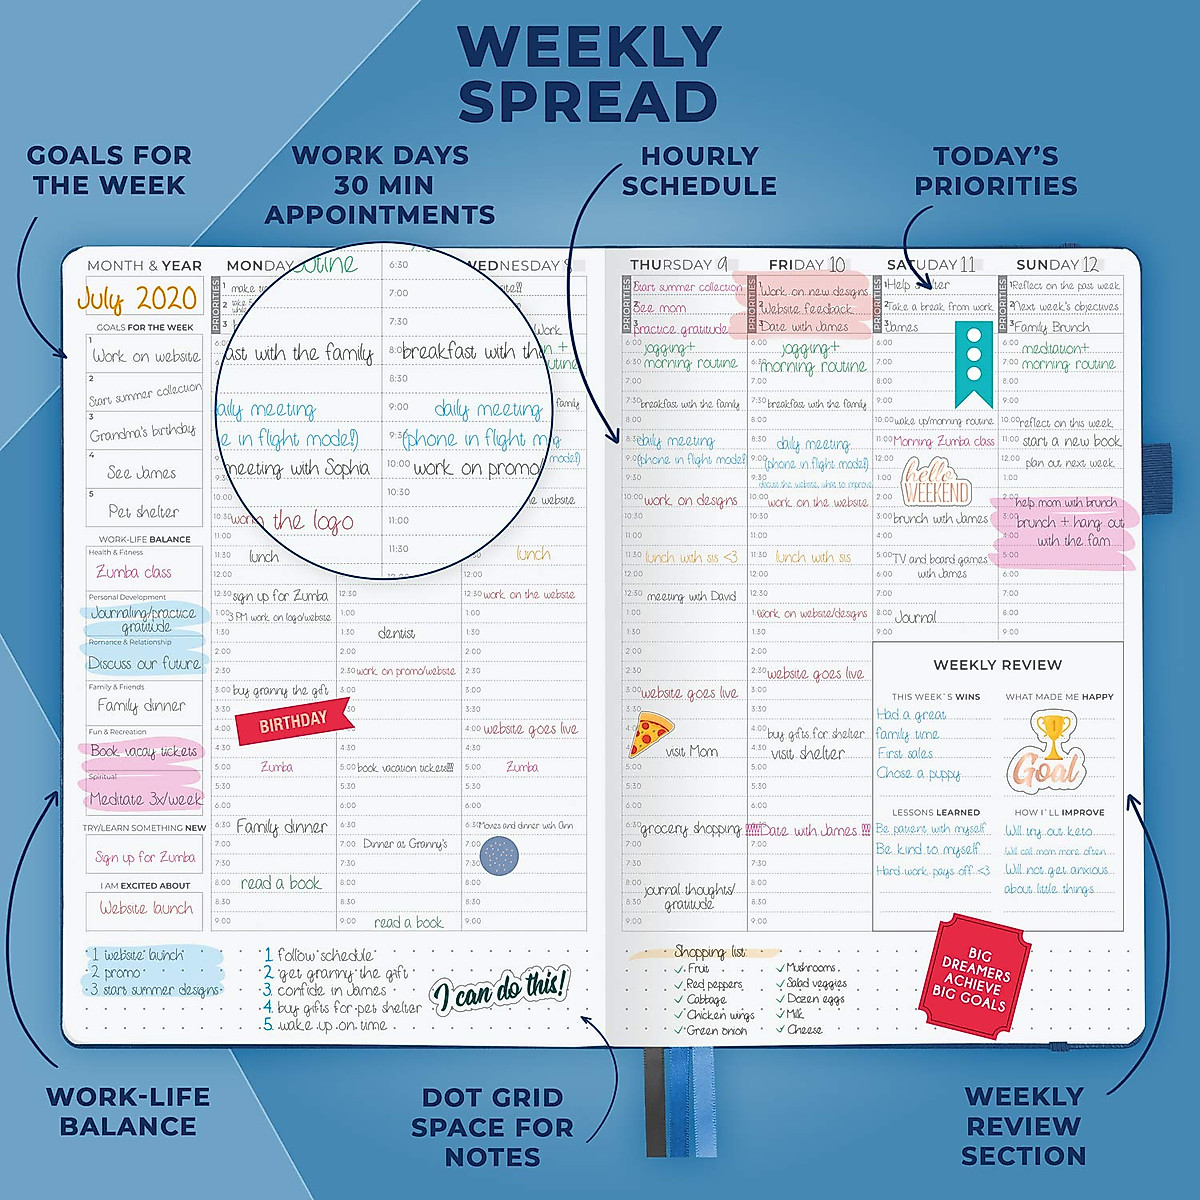 WEEKLY
SPREAD
GOALS FOR
THE WEEK
WORK DAYS
30 MIN
APPOINTMENTS
HOURLY
SCHEDULE
TODAY'S
PRIORITIES
MONTH & YEAR
July 2020
GOALS FOR THE WEEK
1
Work on website
2
Start summer collection
3
Grandma's birthday
4
See James
5
Pet shelter
WORK-LIFE BALANCE
Health & Fitness
Zumba class
Personal Development
Journaling/practice
gratitude
Romance & Relationship
Discuss our future
Family & Friends
Family dinner
Fun & Recreation
Book vacay tickets
Spiritual
Meditate 3x/week
TRY/LEARN SOMETHING NEW
Sign up for Zumba
I AM EXCITED ABOUT
Website launch
MONDAY
PRIORITIES
1 make
2
3
6:30
7:00
7:30
ast with the family
8:00 breakfast with th
8:30
aily meeting
9:00 daily meeting
e in flight mode!)
9:30 (phone in flight m
meeting with Sophia
10:00 work on promo
10:30
on the logo
11:00
11:30
11:30 lunch
12:00
12:30 sign up for Zumba
1:00 3 PM work on logo/website
1:30
2:00
2:30
3:00 buy granny the gift
3:30
BIRTHDAY
4:30
5:00 Zumba
5:30
6:00
6:30 Family dinner
7:00
7:30
8:00 read a book
8:30
9:00
12:30
1:00
1:30 dentist
2:00
2:30 work on promo/website
3:00
5:00 book vacation tickets!!!
5:30
6:00
6:30
7:00 Dinner at Granny's
7:30
8:00
8:30
9:00 read a book
WEDNESDAY 8
Work
family
website
lunch
12:30 work on the website
1:00
1:30
2:00
2:30
3:00
3:30
4:00 website goes live
4:30
5:00 Zumba
5:30
6:00
6:30 Movies and dinner with Ann
7:00
7:30
8:00
8:30
9:00
THURSDAY 9
PRIORITIES
1 Start summer collection
2 See mom
3 practice gratitude
6:00 jogging+
6:30 morning routine
7:00
7:30 breakfast with the family
8:00
8:30 daily meeting
9:00 (phone in flight mode!)
9:30
10:00 work on designs
10:30
11:00
11:30 lunch with sis <3
12:00
12:30 meeting with David
1:00
1:30
2:00
2:30
3:00 website goes live
3:30
4:30 visit Mom
5:00
5:30
6:00
6:30 grocery shopping
7:00
7:30
8:00 journal thoughts/
8:30 gratitude
9:00
FRIDAY 10
PRIORITIES
1 Work on new designs
2 Website feedback
3 Date with James
6:00 jogging+
6:30 morning routine
7:00
7:30 breakfast with the family
8:00
8:30 daily meeting
9:00 (phone in flight mode!)
9:30 discuss the website, what to improve
10:00 work on the website
10:30
11:00
11:30 lunch with sis
12:00
12:30
1:00 work on website/designs
1:30
2:00
2:30 website goes live
3:00
3:30
4:00 buy gifts for shelter
4:30 visit shelter
5:00
5:30
6:00
6:30 !!!!Date with James !!!
7:00
7:30
8:00
8:30
9:00
SATUDAY 11
PRIORITIES
1 Help
2 Take a break from work
3 James
6:00
7:00
8:00
9:00
10:00 wake up/morning routine
11:00 Morning Zumba class
12:00
hello
WEEKEND
1:00
2:00
3:00 brunch with James
4:00
5:00 TV and board games
6:00 with James
7:00
8:00 Journal
9:00
SUNDAY 12
PRIORITIES
1 Reflect on the past week
2 Next week's objectives
3 Family Brunch
6:00 meditation+
7:00 morning routine
8:00
9:00
10:00 reflect on this week
11:00 start a new book
12:00 plan out next week
1:00
2:00 help mom with brunch
3:00 brunch + hang out
4:00 with the fam
5:00
6:00
7:00
8:00
9:00
WEEKLY REVIEW
THIS WEEK`S WINS
Had a great
family time
First sales
Chose a puppy
WHAT MADE ME HAPPY
Goal
LESSONS LEARNED
Be patient with myself
Be kind to myself
Hard work pays off <3
HOW I`LL IMPROVE
Will try out keto
Will call mom more often
Will not get anxious
about little things
1 website launch
2 promo
3 start summer designs
1 follow schedule
2 get granny the gift
3 confide in James
4 buy gifts for pet shelter
5 wake up on time
I can do this!
Shopping list:
Fruit
Red peppers
Cabbage
Chicken wings
Green onion
Mushrooms
Salad veggies
Dozen eggs
Milk
Cheese
BIG
DREAMERS
ACHIEVE
BIG GOALS
WORK-LIFE
BALANCE
DOT GRID
SPACE FOR
NOTES
WEEKLY
REVIEW
SECTION